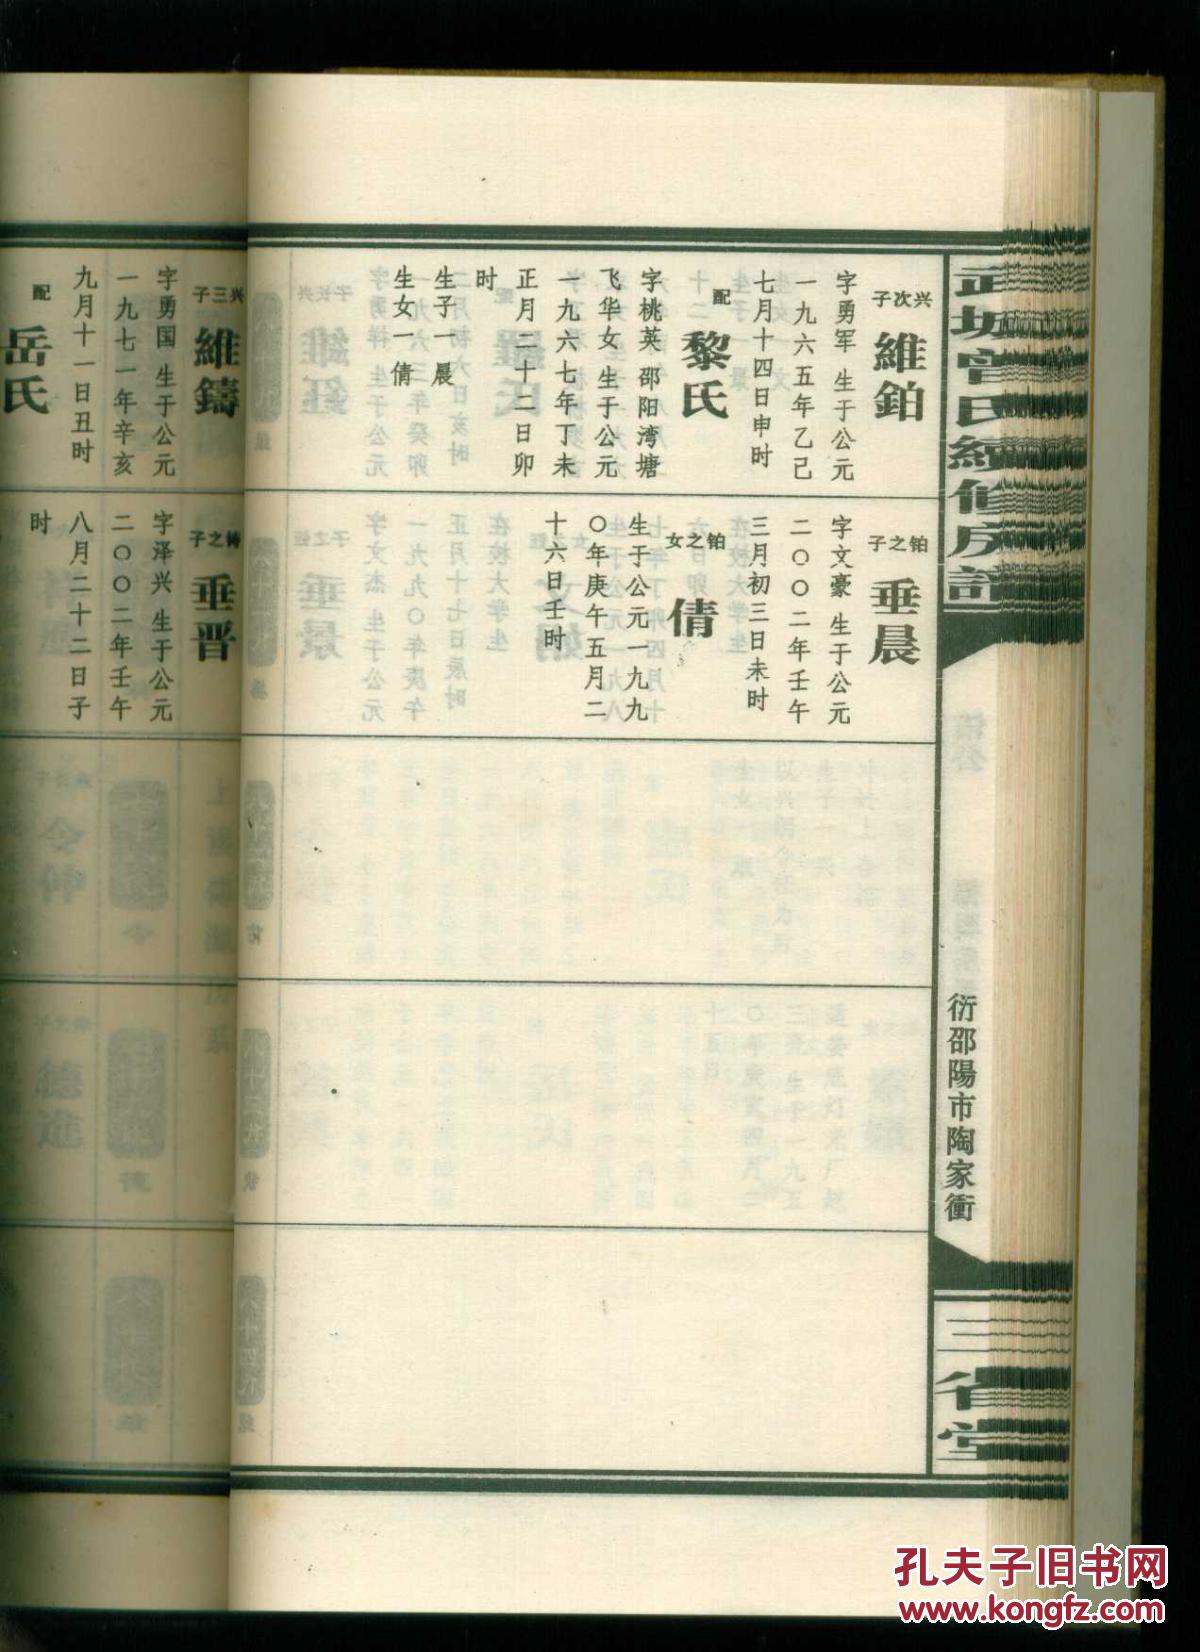 武坊曾氏續修房譜
衍邵陽市陶家衝
三省堂
兴次子
維鉑
字勇军 生于公元
一九六五年乙巳
七月十四日申时
配
黎氏
字桃英 邵阳湾塘
飞华女 生于公元
一九六七年丁未
正月二十二日卯
时
生子一 晨
生女一 倩
兴三子
維鑄
字勇国 生于公元
一九七一年辛亥
九月十一日丑时
配
岳氏
铂之子
垂晨
字文豪 生于公元
二〇〇二年壬午
三月初三日未时
铂之女
倩
生于公元一九九
〇年庚午五月二
十六日壬时
铸之子
垂晋
字泽兴 生于公元
二〇〇二年壬午
八月二十二日子
时
孔夫子旧书网
www.kongfz.com